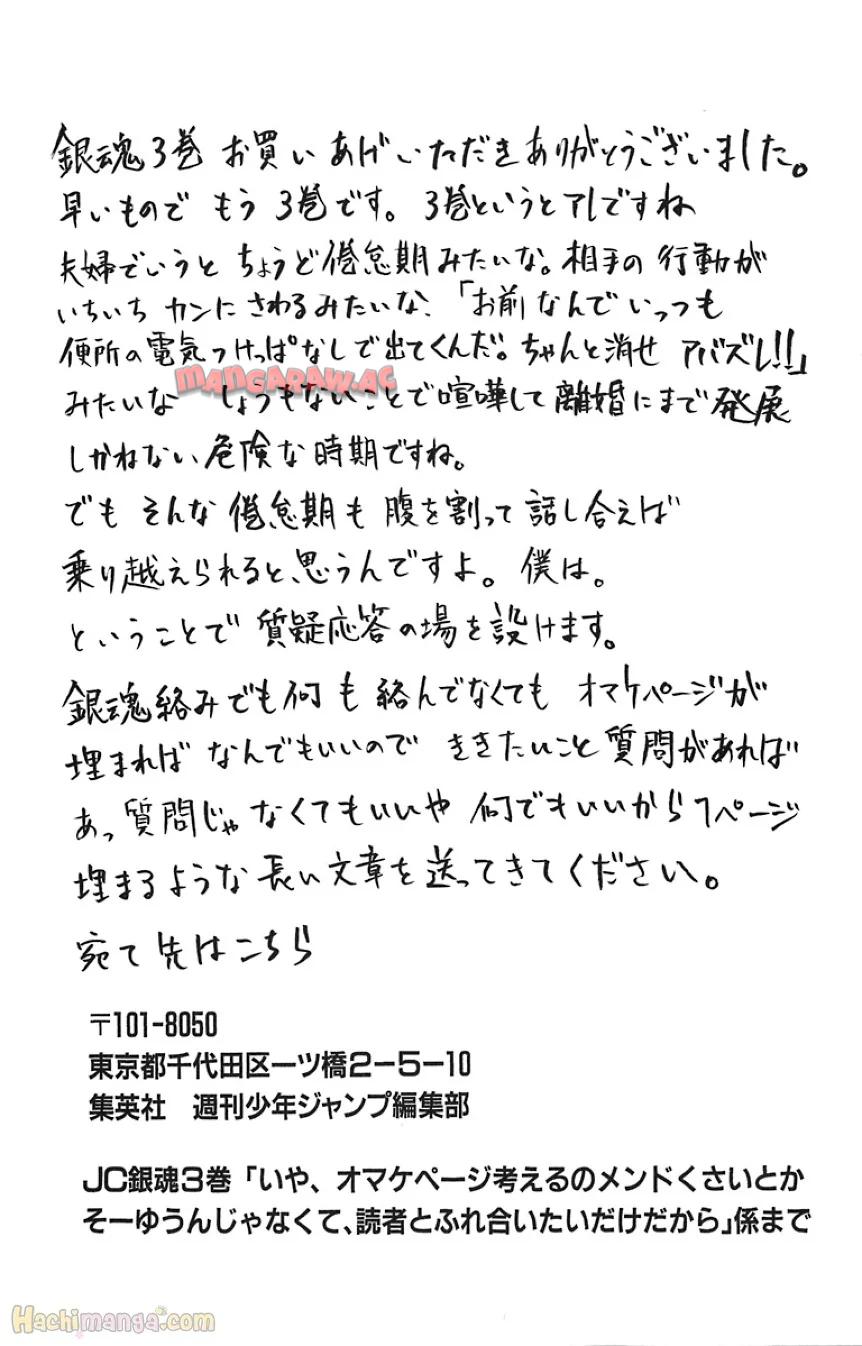 銀魂3巻 お買いあげいただきありがとうございました。
早いもので もう 3巻です。3巻というとアレですね
夫婦でいうと ちょうど倦怠期みたいな。相手の 行動が
いちいち カンに さわるみたいな、「お前なんで いっつも
便所の電気つけっぱなしで出てくんだ。ちゃんと消せ アバズレ!!」
MANGARAW.AC
みたいな しょうもないことで喧嘩して離婚にまで発展
しかねない危険な時期ですね。
でも そんな 倦怠期も 腹を割って話し合えば
乗り越えられると、思うんですよ。僕は。
ということで 質疑応答の場を設けます。
銀魂絡みでも何も絡んでなくても オマケページが
埋まれば なんでもいいので ききたいこと質問があれば
あっ質問じゃなくてもいいや 何でもいいから1ページ
埋まるような長い文章を送ってきてください。
宛て先はこちら
〒101-8050
東京都千代田区一ツ橋2-5-10
集英社 週刊少年ジャンプ編集部
JC銀魂3巻「いや、オマケページ考えるのメンドくさいとか
そーゆうんじゃなくて、読者とふれ合いたいだけだから」係まで
Hachimanga.com